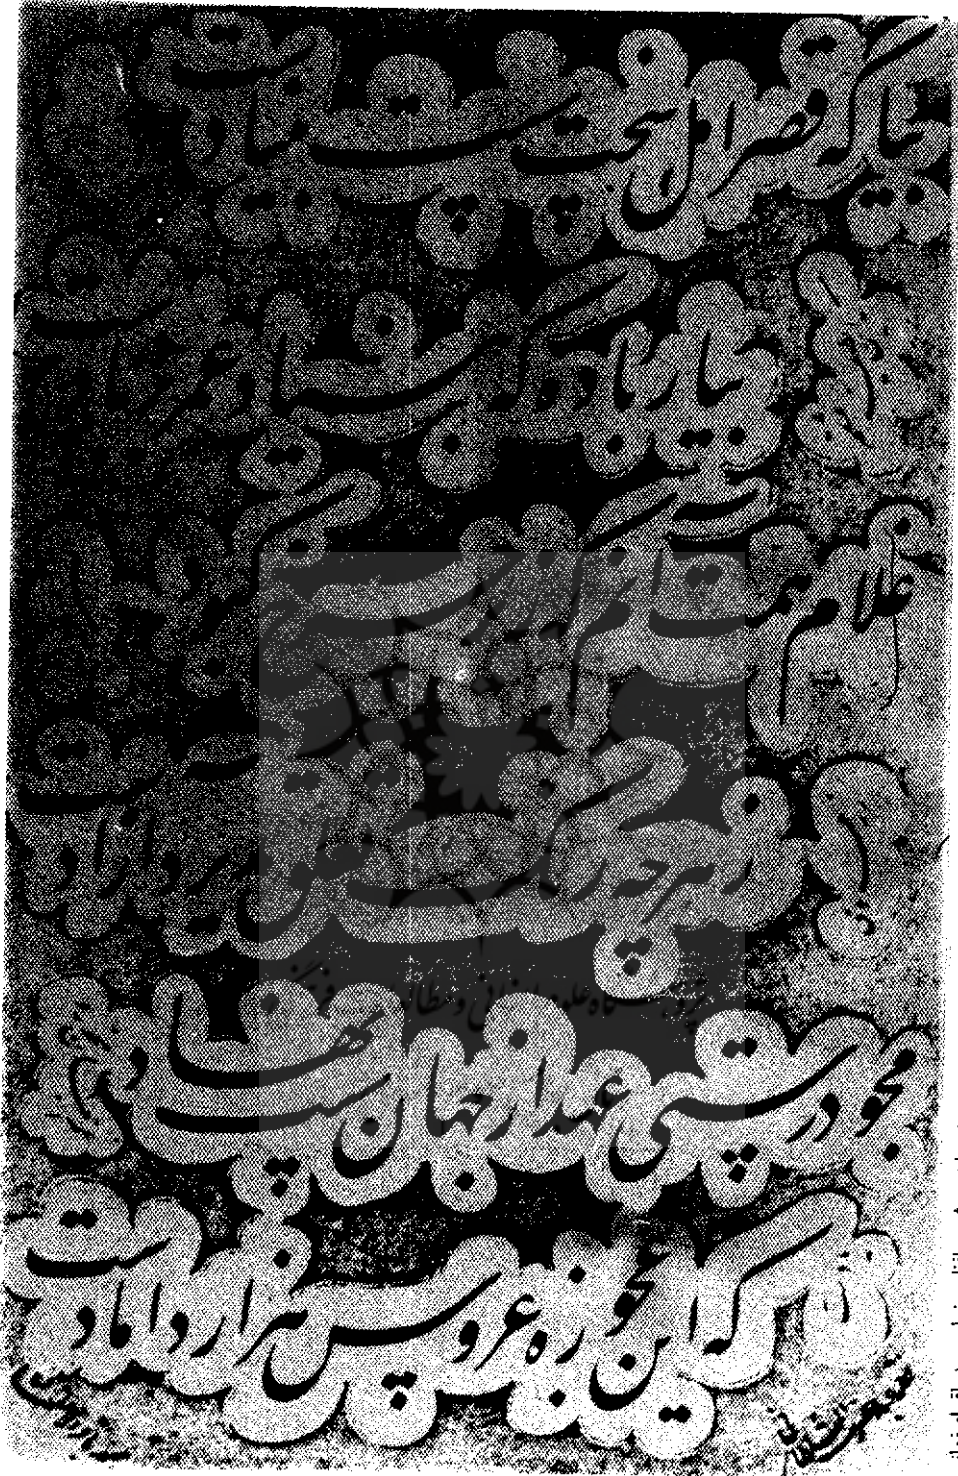 بیا که قصر امل سخت سست بنیادست
بیار باده که بنیاد عمر بر بادست
غلام همت آنم که زیر چرخ کبود
ز هر چه رنگ تعلق پذیرد آزادست
پژوهشگاه علوم انسانی و مطالعات فرهنگی
مجو درستی عهد از جهان سست نهاد
که این عجوزه عروس هزار دامادست